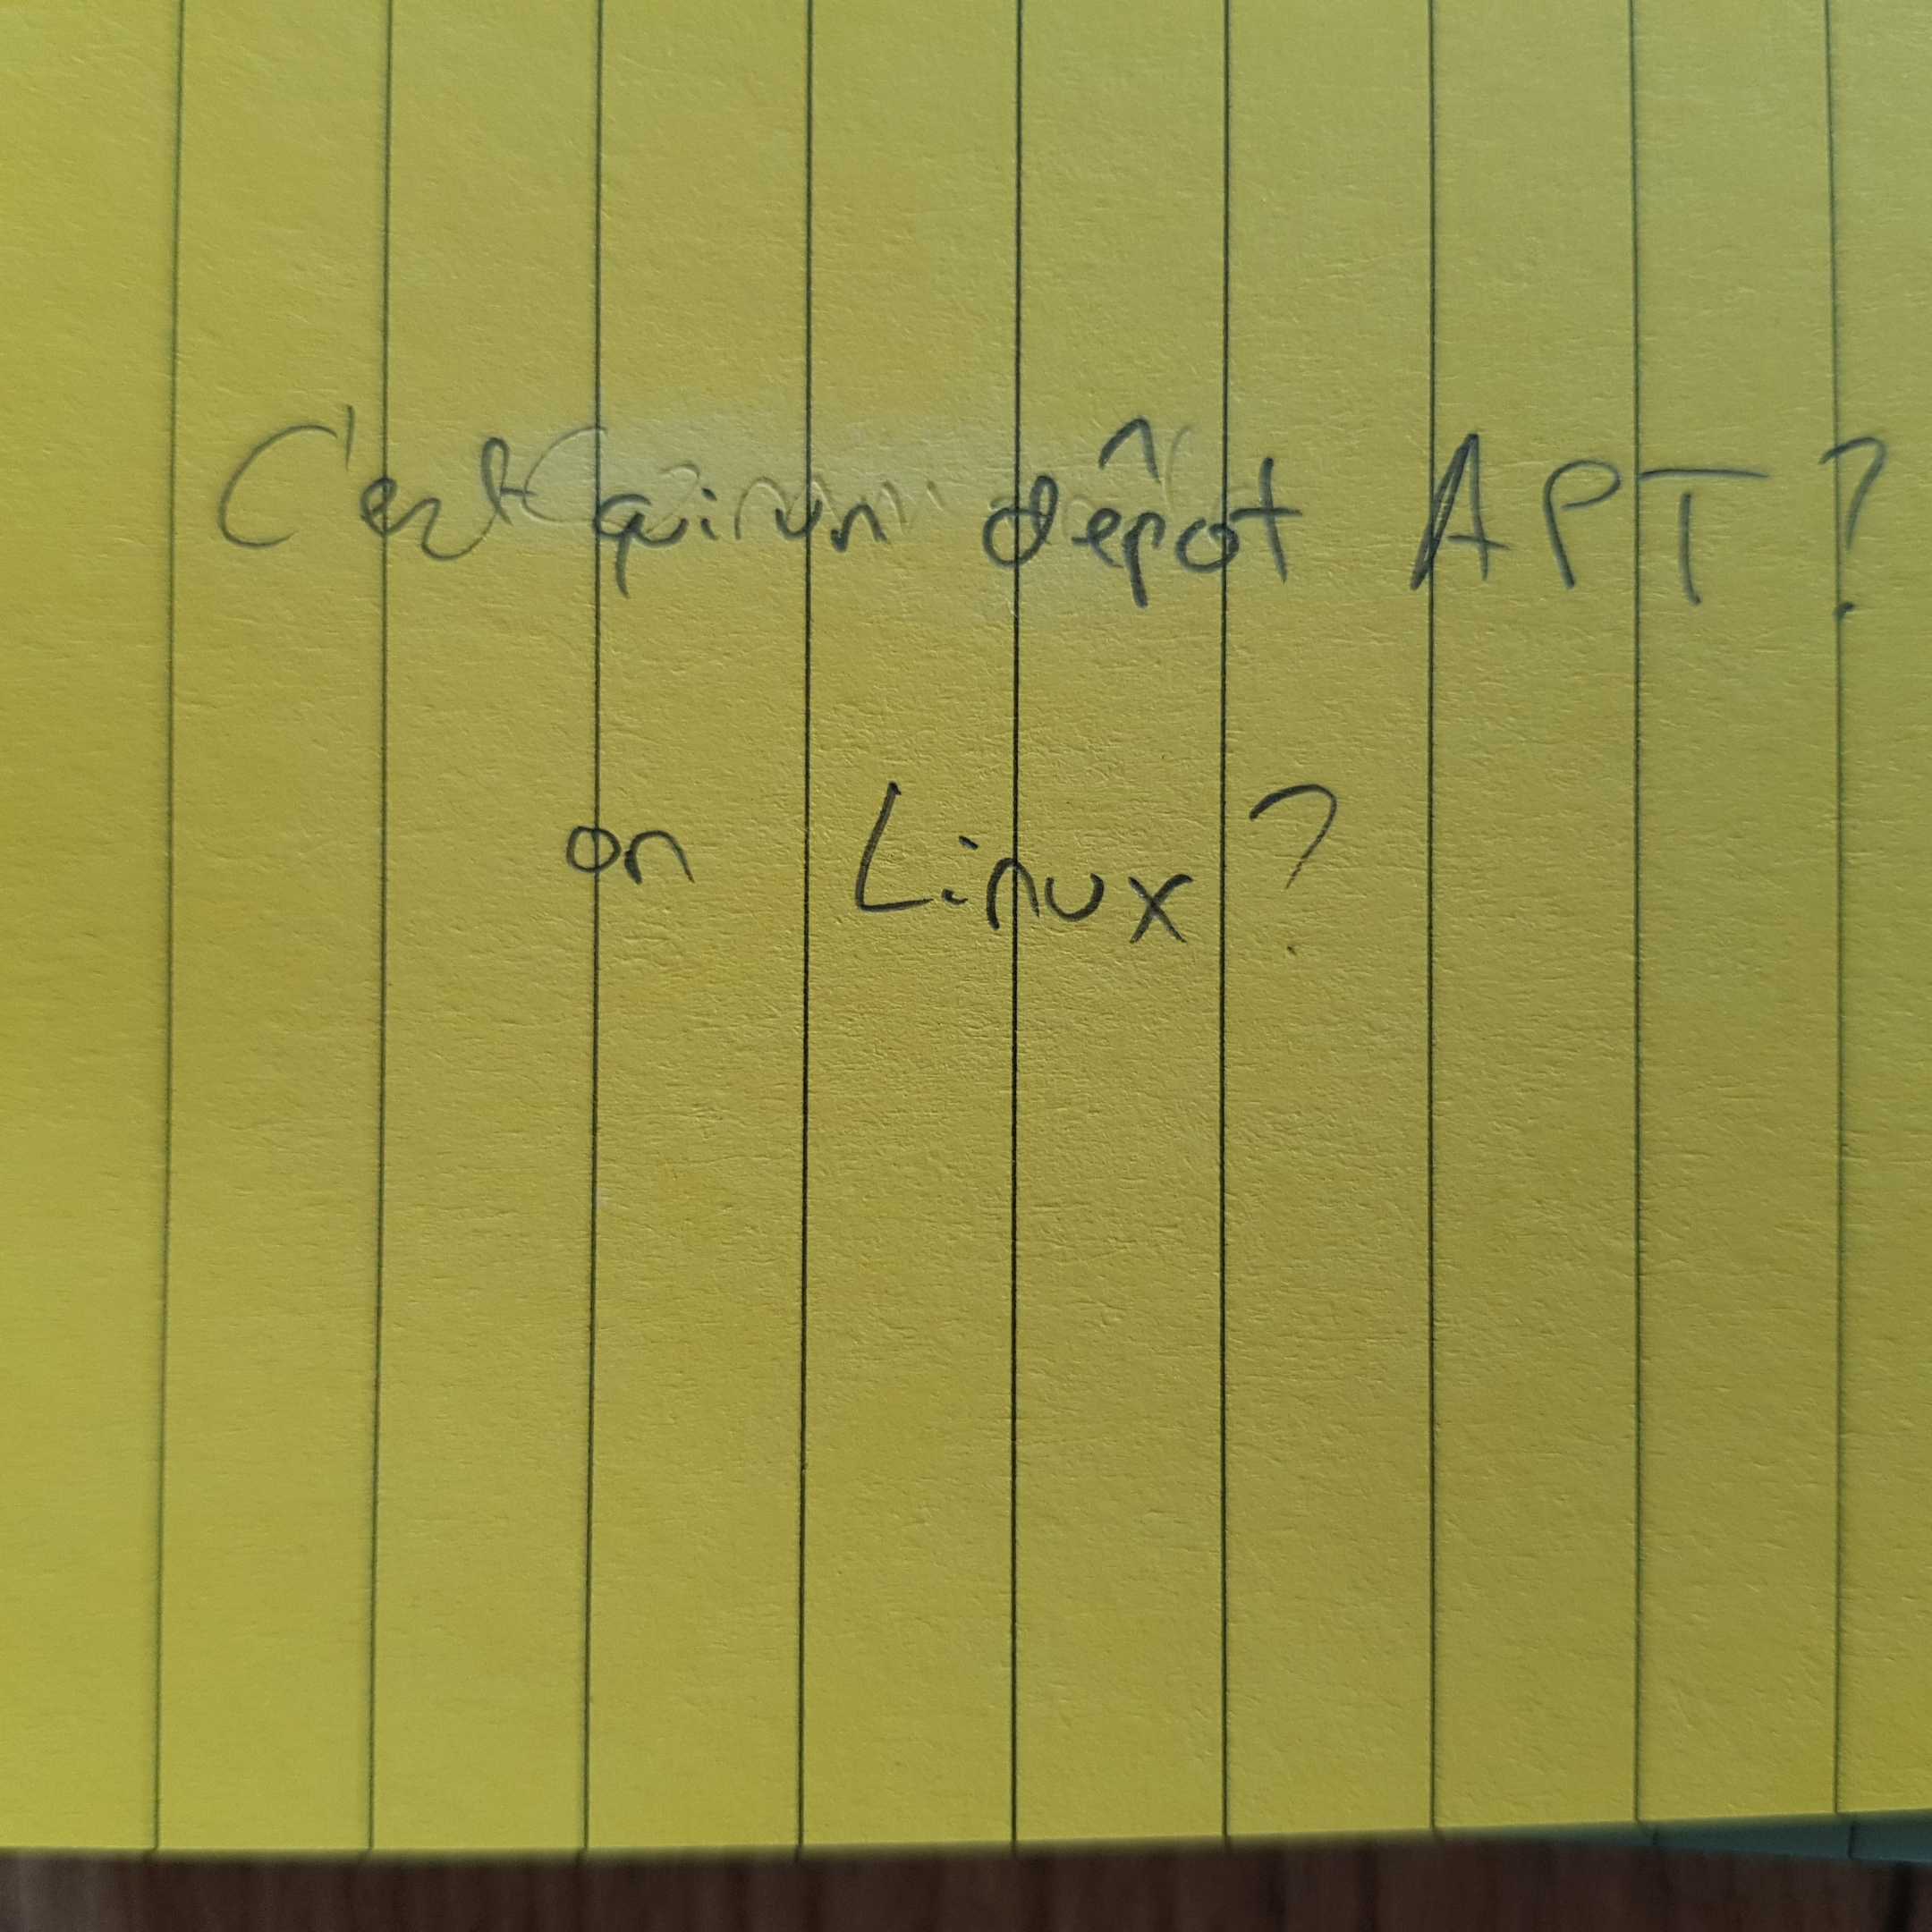 C'est qui un dêpot APT?
on Linux?